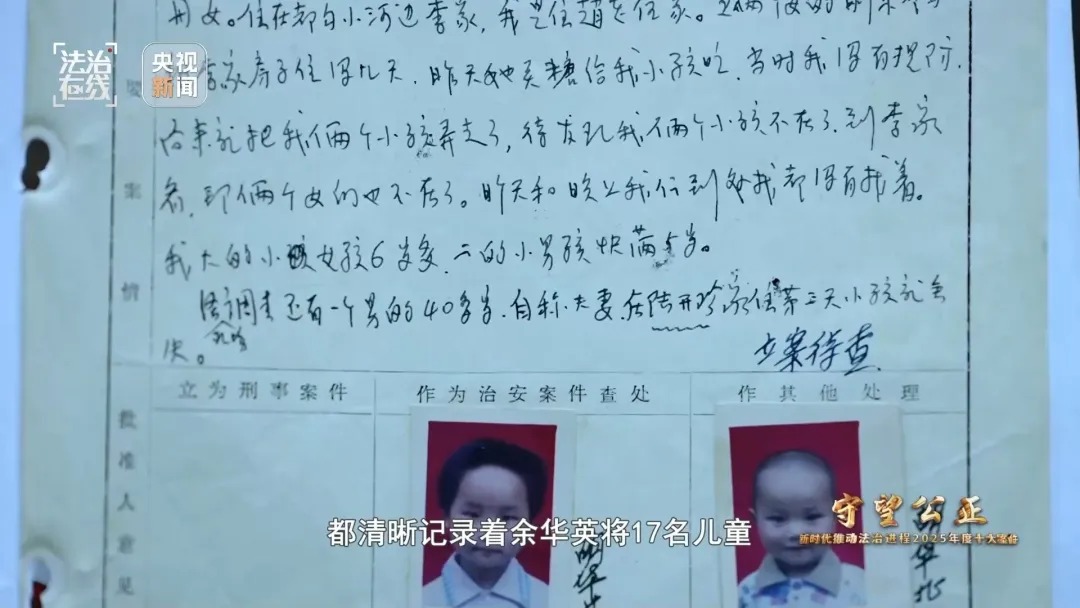 用女。住在都白小河边李家，我是住赵老伍家。
法治在线
央视新闻
李家房子住得九天，昨天她买糖给我小孩吃，当时我没有提防，
后来就把我们俩个小孩弄走了，待发现我们俩个小孩不在了，到李家
看，那俩个女的也不在了。昨天和晚上我们到处找都没有找着。
案
我大的小孩女孩6岁多，二的小男孩快满5岁。
情
调查还有一个男的40多岁，自称夫妻，在陆开珍家住第三天小孩就
立案待查
立为刑事案件
作为治安案件查处
作其他处理
批准人意见
都清晰记录着余华英将17名儿童
守望公正
新时代推动法治进程2025年度十大案件